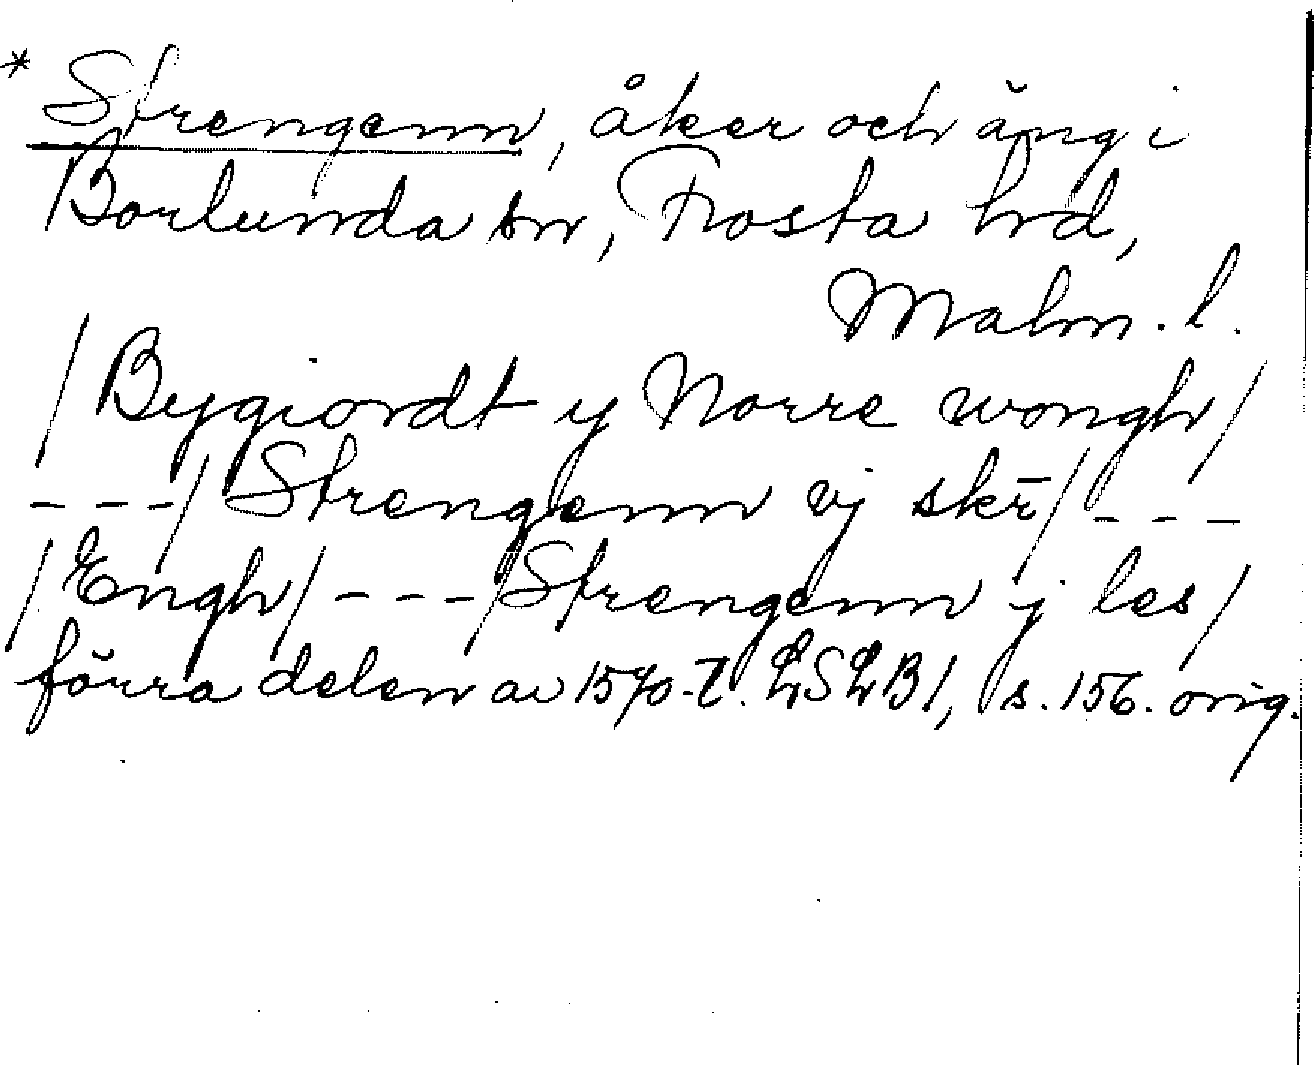 * Strengenn, åker och äng i
Borlunda sn, Frosta hd,
Malm. l.
/Bygiordt y Norre wongh/
---/Strengenn vj skr̄/---
/Engh/---/Strengenn j les/
förra delen av 1570-t. LSLB1, s. 156. orig.